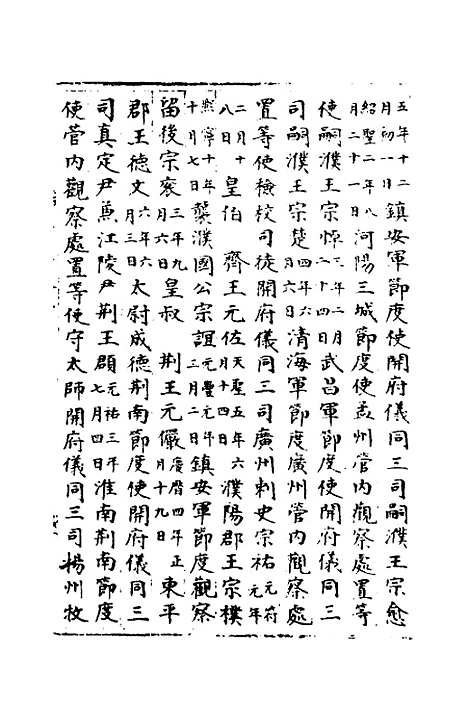 五年十二月初一日鎮安軍節度使開府儀同三司嗣濮王宗愈
紹聖二年八月二十一日河陽三城節度使孟州管内觀察處置等
使嗣濮王宗悖三年二月二十四日武昌軍節度使開府儀同三
司嗣濮王宗楚四年六月六日清海軍節度廣州管内觀察處
置等使檢校司徒開府儀同三司廣州刺史宗祐元符元年
二月十八日皇伯 齊王元佐天聖五年六月十四日濮陽郡王宗樸
熙寧十年十月七日襲濮國公宗誼元豐元年三月二日鎮安軍節度觀察
留後宗衮三年九月六日皇叔 荆王元儼慶曆四年正月十九日東平
郡王德文六年六月三日太尉成德荆南節度使開府儀同三
司真定尹兼江陵尹荆王頵元祐三年七月四日淮南荆南節度
使管内觀察處置等使守太師開府儀同三司揚州牧